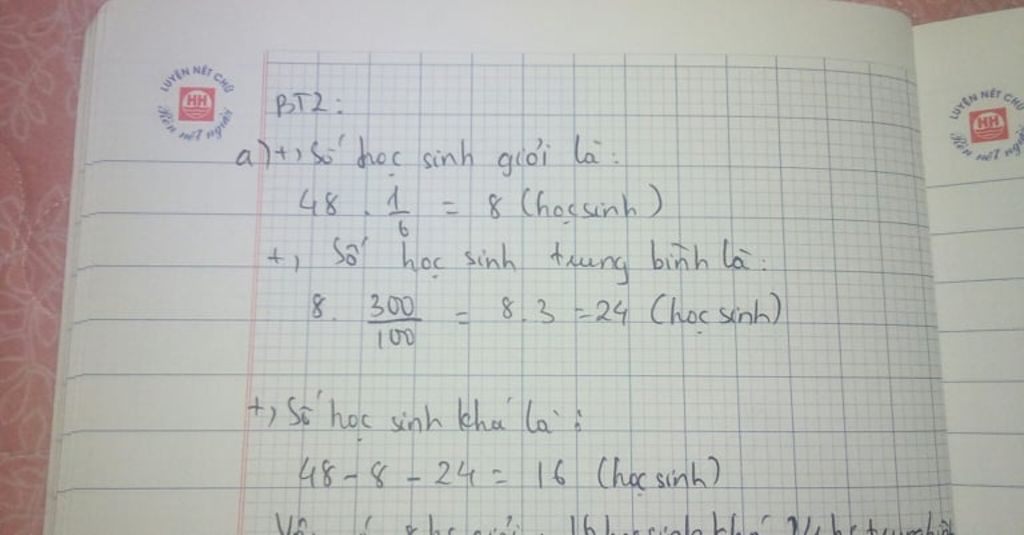 LUYỆN NÉT CHỮ
HH
Rèn nết người
BT2:
a) +, Số học sinh giỏi là:
48 . 1/6 = 8 (học sinh)
+, Số học sinh trung bình là:
8. 300/100 = 8.3 = 24 (học sinh)
+, Số học sinh khá là:
48 - 8 - 24 = 16 (học sinh)
LUYỆN NÉT CHỮ
HH
Rèn nết người